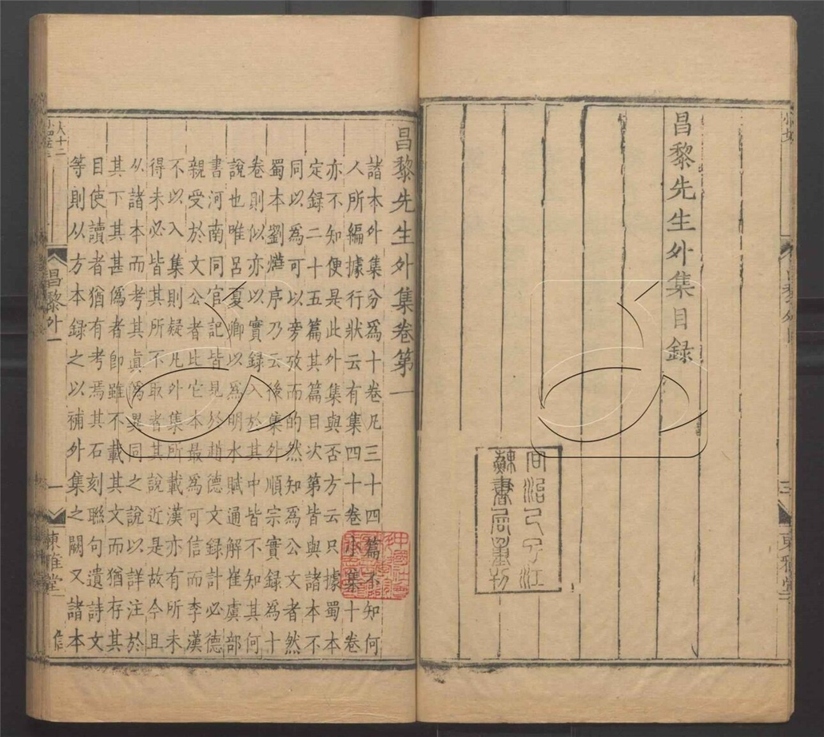 昌黎先生外集目録
同治己巳江
蘇書局重刊
三
東雅堂
昌黎先生外集卷第一
諸本外集分爲十卷凡三十四篇不知何
人所編據行狀云有集四十卷小集十卷
亦不知便是此外集與否方云只據蜀本
定録二十五篇其篇目次第皆與諸本不
同以爲可以旁攷而的然知爲公文者然
蜀本劉燁序乃云後集外順宗實録爲十
卷則似亦以實録入於其中皆不知其何
說也唯呂夏卿以爲明水賦通解崔虞部
書河南同官記皆見於趙德文録計必德
親受於文公者比它本最爲可信而李漢
不以入集則疑凡外集所載漢亦有所未
得未必皆其所不取者其說近是故今且
从諸本而考其真僞異同之說以詳注於
其下其甚僞者即雖不載其文而猶存其
目使讀者猶有考焉其石刻聯句遺詩文
等則从方本録之以補外集之闕又諸本
昌黎外一
一
東雅堂